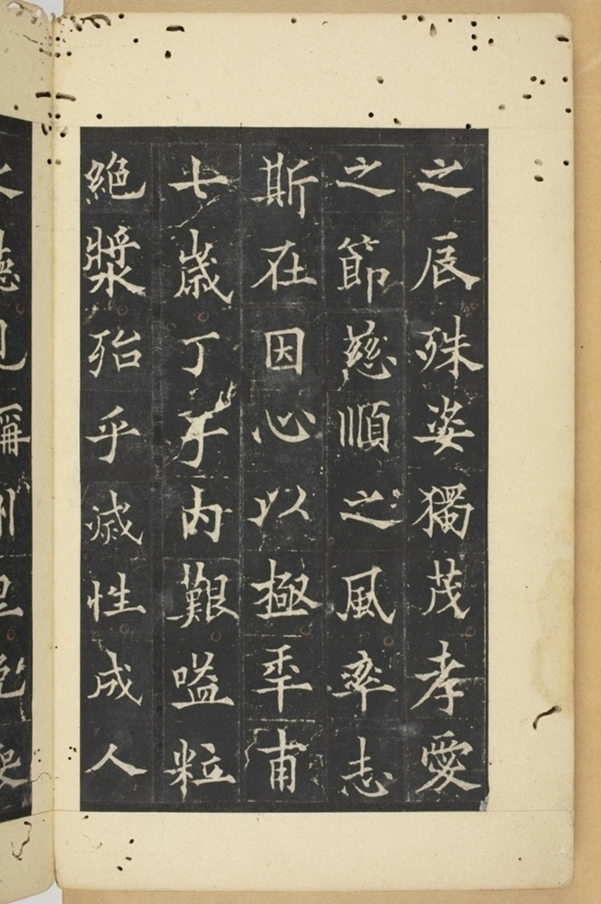 之辰殊姿獨茂孝愛
之節慈順之風率志
斯在因心以極年甫
七歲丁于內艱嗌粒
絕漿殆乎滅性成人